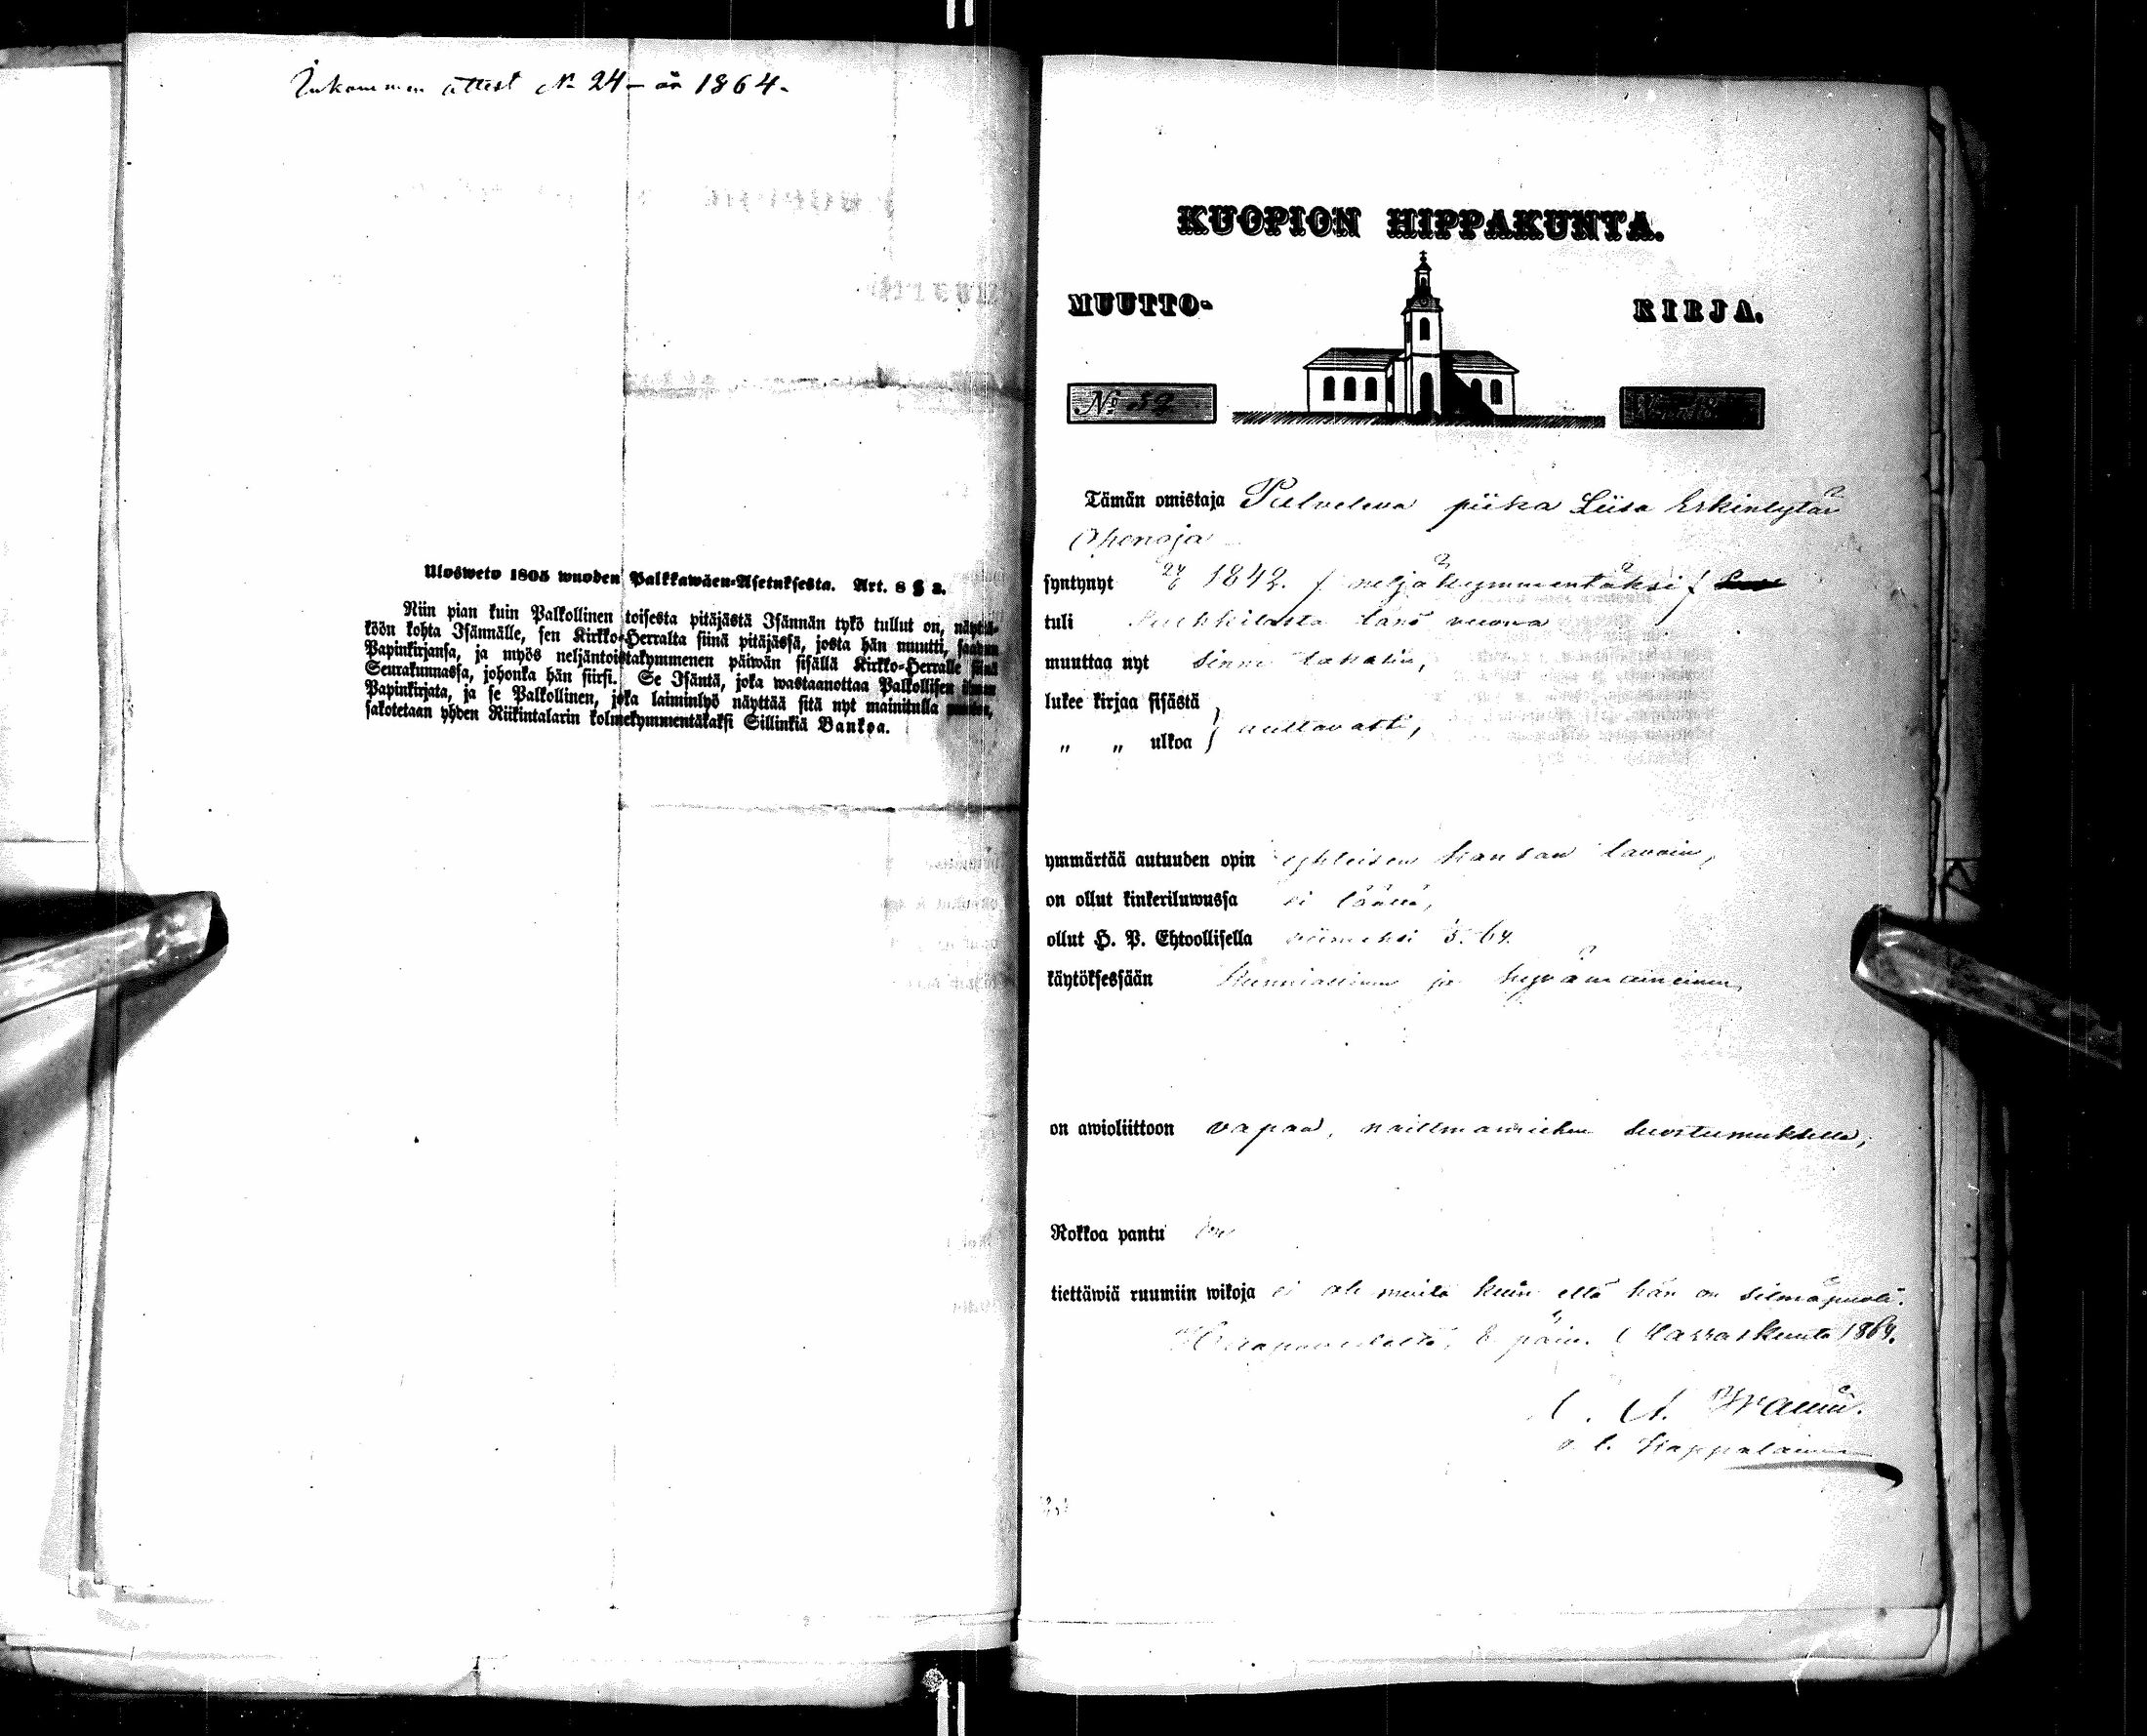 Inkommen attest No 24 - år 1864.
Ulosweto 1805 wuoden Palkkawäen-Asetuksesta. Art. 8 § 2.
Niin pian kuin Palkollinen toisesta pitäjästä Isännän tykö tullut on, näyttä-
köön kohta Isännälle, sen Kirkko-Herralta siinä pitäjässä, josta hän muutti, saadun
Papinkirjansa, ja myös neljäntoistakymmenen päiwän sisällä Kirkko-Herralle siinä
Seurakunnassa, johonka hän siirsi. Se Isäntä, joka wastaanottaa Palkollisen ilman
Papinkirjata, ja se Palkollinen, joka laiminlyö näyttää sitä nyt mainitulla
sakotetaan yhden Riikintalarin kolmekymmentäkaksi Sillinkiä Bankoa.
KUOPION HIPPAKUNTA.
MUUTTO- KIRJA.
No 52
Tämän omistaja Palveleva piika Liisa Erkintytär
Ohenoja
syntynyt 1842. / neljäkymmentäkaksi /
tuli tänä vuonna
muuttaa nyt sinne takasin,
lukee kirjaa sisästä
„ „ ulkoa } auttavasti,
ymmärtää autuuden opin yhteisen kansan tavoin,
on ollut kinkeriluwussa ei täällä,
ollut H. P. Ehtoollisella viimeksi 64.
käytöksessään kunniallinen ja hyvämaineinen,
on awioliittoon vapaa, naittomamiehen suostumuksella,
Rokkoa pantu on
tiettäwiä ruumiin wikoja ei ole muita kuin että hän on silmäpuoli.
Haapavedeltä, 8 päiv. Marraskuuta 1864.
v. t. Kappalainen